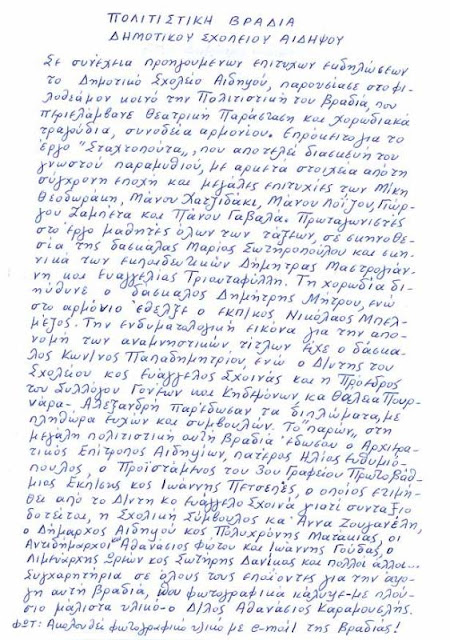 ΠΟΛΙΤΙΣΤΙΚΗ ΒΡΑΔΙΑ
ΔΗΜΟΤΙΚΟΥ ΣΧΟΛΕΙΟΥ ΑΙΔΗΨΟΥ
Σε συνέχεια προηγουμένων επιτυχών εκδηλώσεων
το Δημοτικό Σχολείο Αιδηψού, παρουσίασε στο φι-
λοθεάμον κοινό την Πολιτιστική του Βραδιά, που
περιελάμβανε θεατρική Παράσταση και χορωδιακά
τραγούδια, συνοδεία αρμονίου. Επρόκειτο για το
έργο "Σταχτοπούτα", που αποτελεί διασκευή του
γνωστού παραμυθιού, με αρκετά στοιχεία από τη
σύγχρονη εποχή και μεγάλες επιτυχίες των Μίκη
Θεοδωράκη, Μάνου Χατζιδάκι, Μάνου Λοΐζου, Γιώρ-
γου Ζαμπέτα και Πάνου Γαβαλά. Πρωταγωνιστές
στο έργο μαθητές όλων των τάξεων, σε σκηνοθε-
σία της δασκάλας Μαρίας Σωτηροπούλου και σκη-
νικά των εκπαιδευτικών Δήμητρας Μαστρογιάν-
νη και Ευαγγελίας Τριανταφύλλη. Τη χορωδία δι-
ηύθυνε ο δάσκαλος Δημήτρης Μήτρου, ενώ
στο αρμόνιο έθελξε ο εκπ/κος Νικόλαος Μπελ-
μέζος. Την ενδυματολογική εικόνα για την απο-
νομή των αναμνηστικών τίτλων είχε ο δάσκα-
λος Κων/νος Παπαδημητρίου, ενώ ο Δ/ντης του
Σχολείου κος Ευάγγελος Σχοινάς και η Πρόεδρος
του Συλλόγου Γονέων και Κηδεμόνων, κα Θάλεα Πουρ-
νάρα- Αλεξανδρή παρέδωσαν τα διπλώματα, με
πληθώρα ευχών και συμβουλών. Το "παρών" στη
μεγάλη πολιτιστική αυτή βραδιά έδωσαν ο Αρχιερα-
τικός Επίτροπος Αιδηψίων, πατέρας Ηλίας Ευθυμιό-
πουλος, ο Προϊστάμενος του 3ου Γραφείου Πρωτοβάθ-
μιας Εκπ/σης κος Ιωάννης Πετσελής, ο οποίος ετιμή-
θει από το Δ/ντη κο Ευάγγελο Σχοινά γιατί συνταξιο
δοτείται, η Σχολική Σύμβουλος κα Άννα Ζουγανέλη,
ο Δήμαρχος Αιδηψού κος Πολυχρόνης Ματακιάς, οι
Αντιδήμαρχοι Αθανάσιος Φώτου και Ιωάννης Γούδας, ο
Λιμενάρχης Ωρεών κος Σωτήρης Δανίκας και πολλοί άλλοι...
Συγχαρητήρια σε όλους τους επαΐοντες για την άψο-
γη αυτή βραδιά, που φωτογραφικά κάλυψε με πλού-
σιο μάλιστα υλικό ο Δ/λος Αθανάσιος Καραμούζης.
ΦΩΤ: Ακολουθεί φωτογραφικό υλικό με e-mail της Βραδιάς!